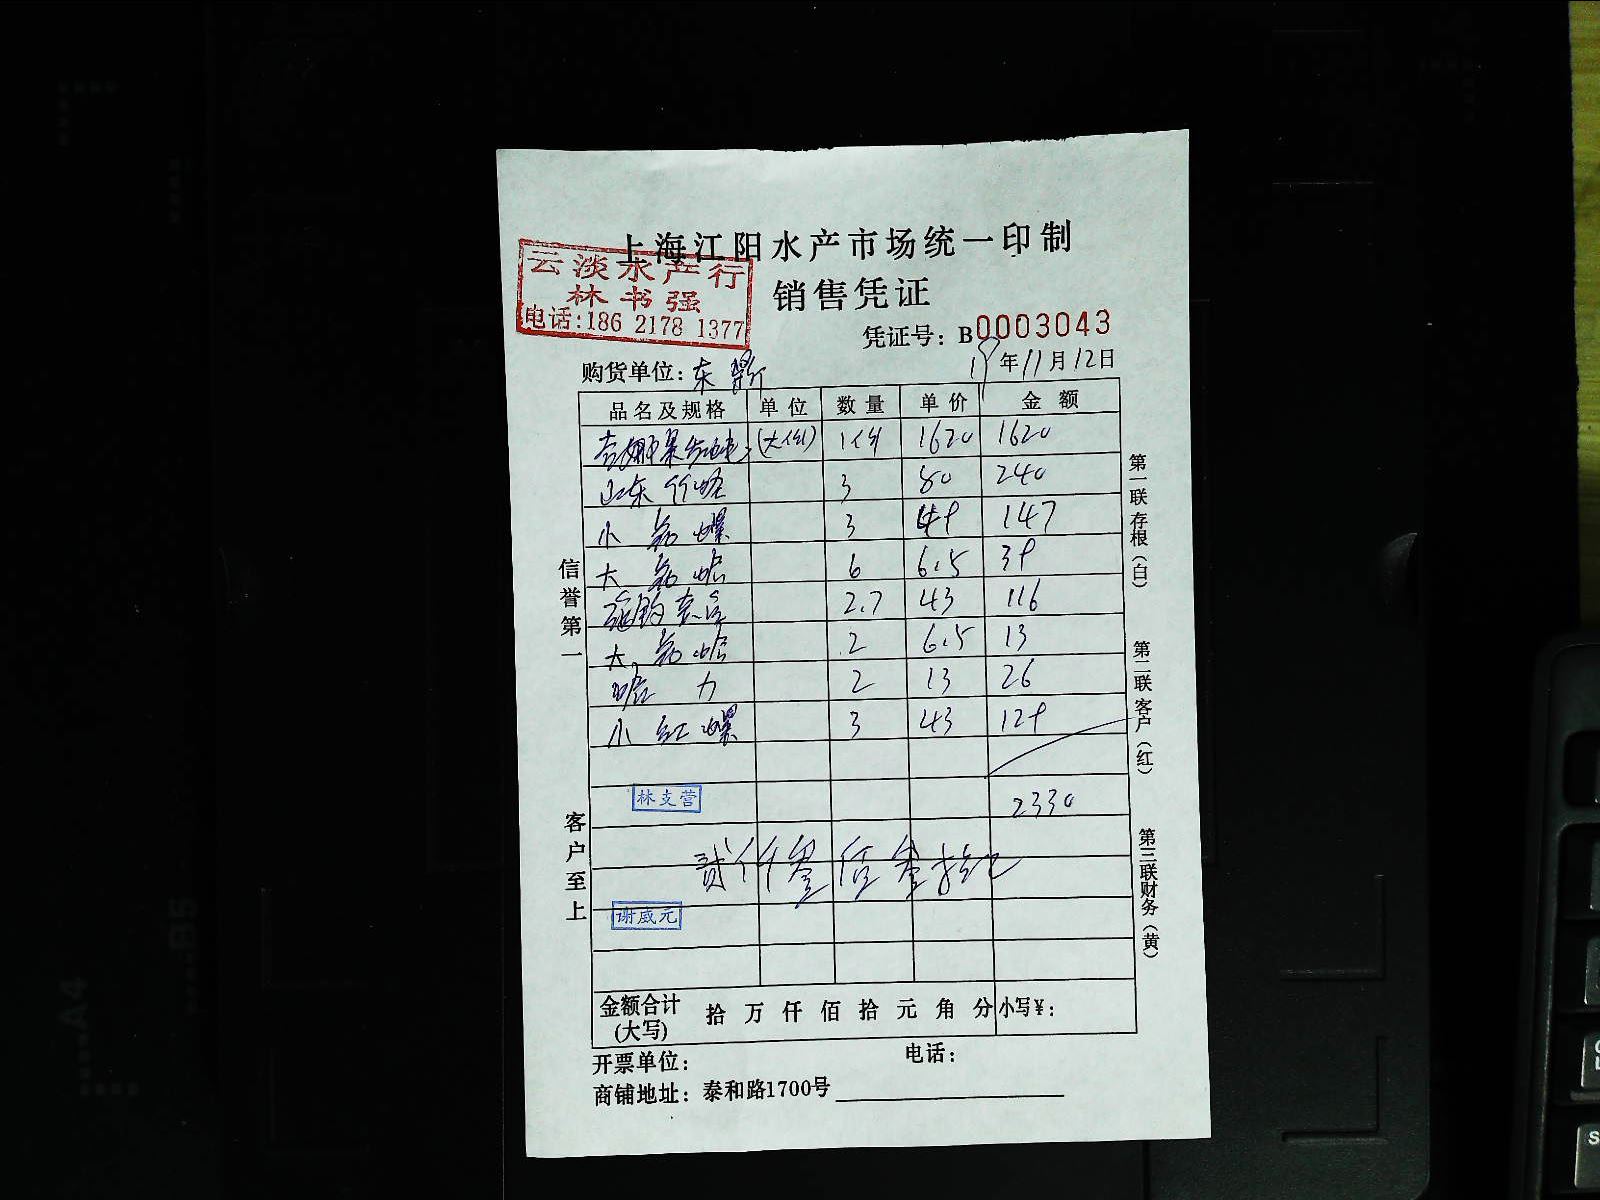 上海江阳水产市场统一印制
云淡水产行
林书强
电话:186 2178 1377
销售凭证
凭证号: B0003043
购货单位: 东
19年11月12日
品名及规格 单位 数量 单价 金额
(大份) 1份 1620 1620
山东竹蛏 3 80 240
小 螺 3 49 147
大 蛤 6 6.5 39
2.7 43 116
大 蛤 2 6.5 13
蛤 力 2 13 26
小红螺 3 43 129
林支营
2330
贰仟叁佰叁拾元
谢威元
金额合计(大写) 拾 万 仟 佰 拾 元 角 分 小写¥:
开票单位: 电话:
商铺地址: 泰和路1700号
信誉第一
客户至上
第一联 存根(白)
第二联 客户(红)
第三联 财务(黄)